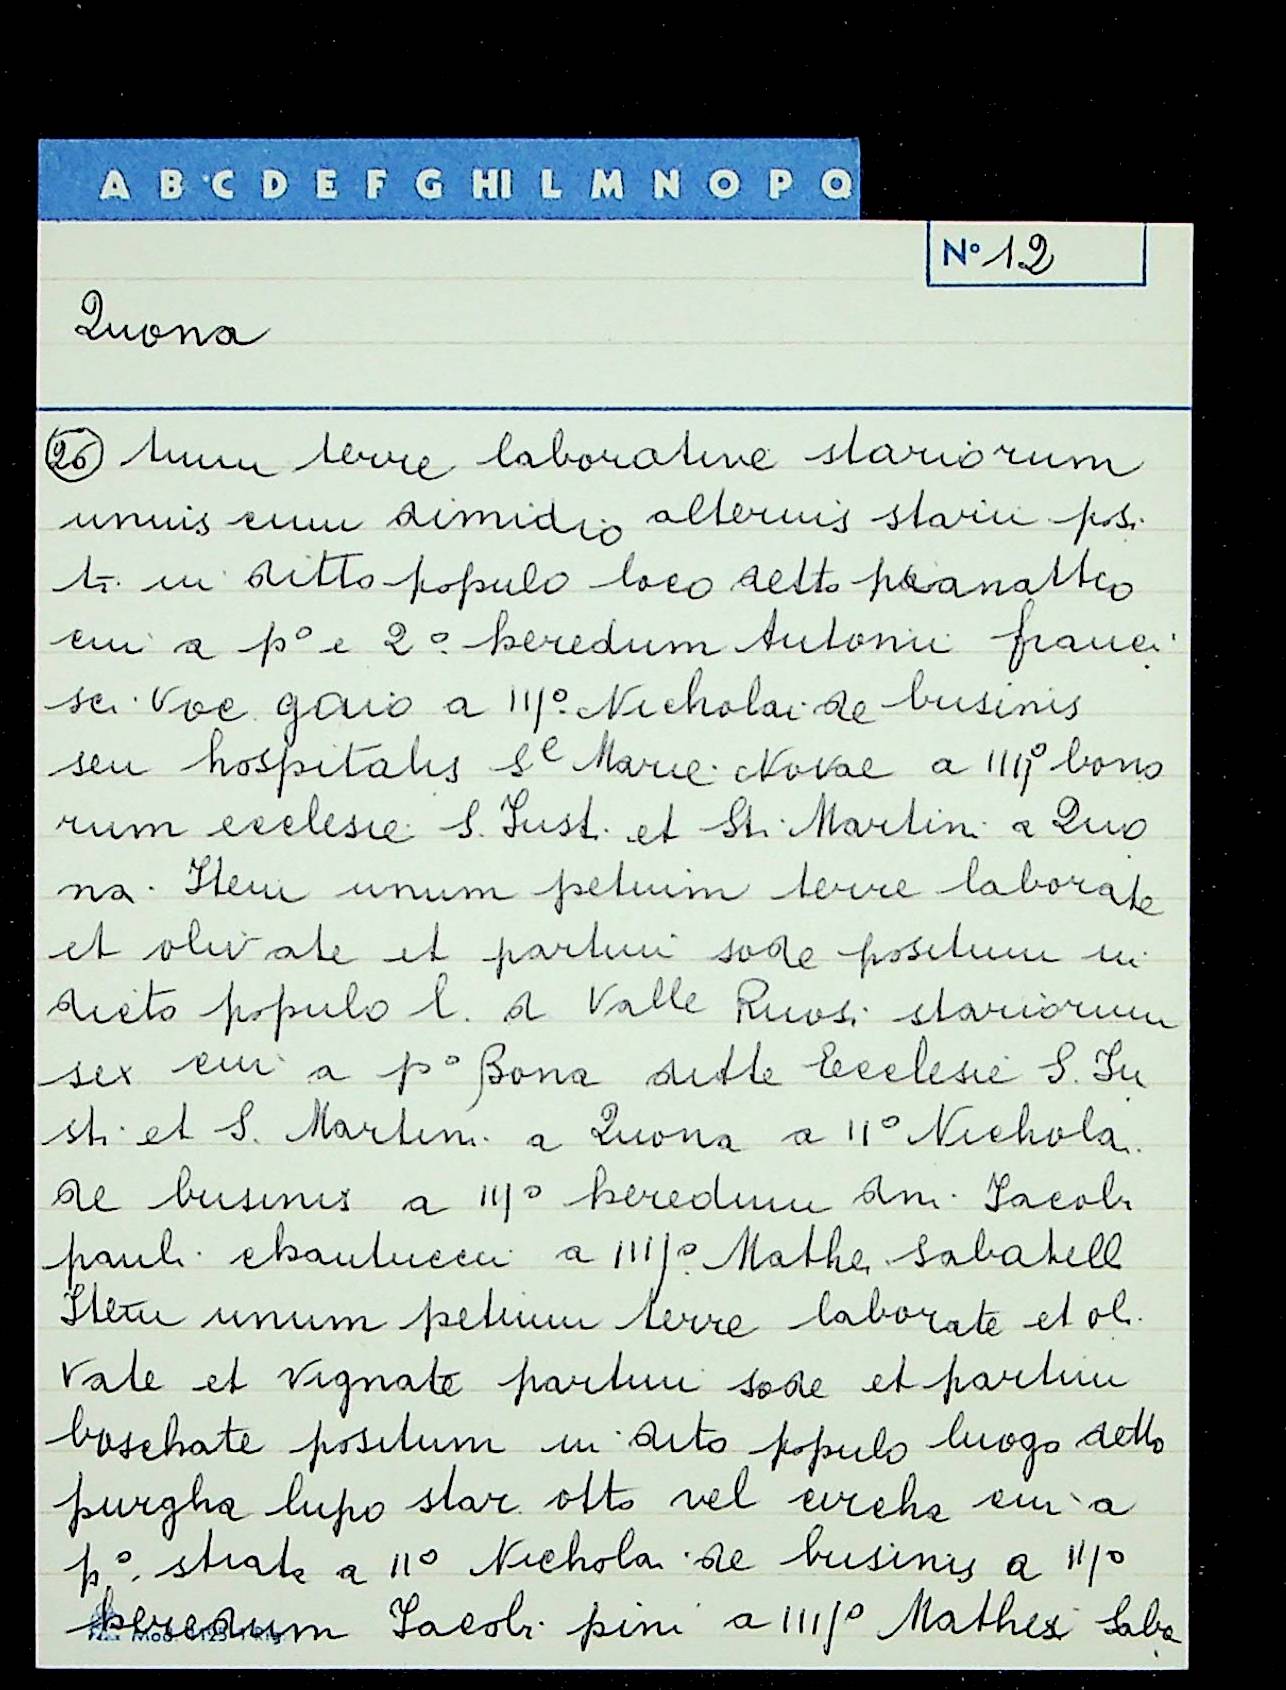 A B C D E F G HI L M N O P Q
N° 12
Quona
26 tium terre laborative stariorum
unuis cum dimidio alterius starii posi
ti in ditto populo loco detto pianattio
cui a p° e 2° heredum Antonii franci
sci voc gaio a III° Nicholai de businis
seu hospitalis Se Marie Novae a IIII° bono
rum ecclesie S. Justi et Sti Martini a Quo
na. Item unum petium terre laborate
et olivate et partim sode positum in
dicto populo l. d Valle Ruosi stariorum
sex cui a p° Bona ditte Ecclesie S. Ju
sti et S. Martini a Quona a II° Nichola
de businis a III° heredum dni Jacobi
pauli chantuccii a IIII° Mathei Sabatelli
Item unum petium terre laborate et oli
vate et vignate partim sode et partim
boschate positum in dito populo luogo detto
purgha lupo star otto vel circha cui a
p° strate a II° Nicholai de businis a III°
heredum Jacobi pini a IIII° Mathei Saba